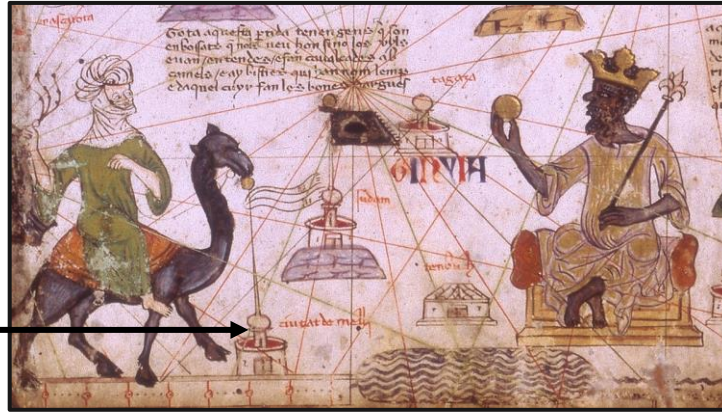 Tota aquesta ptida tenen gens q son
enbosats q nols veu hom sino los uyls
e uan en tendes e fan caualcades ab
camels e ay bisties qui han nom lemp
e daquel cuyr fan les bones dargues
tagaza
GINYIA
sudam
tenduch
ciutat de melli